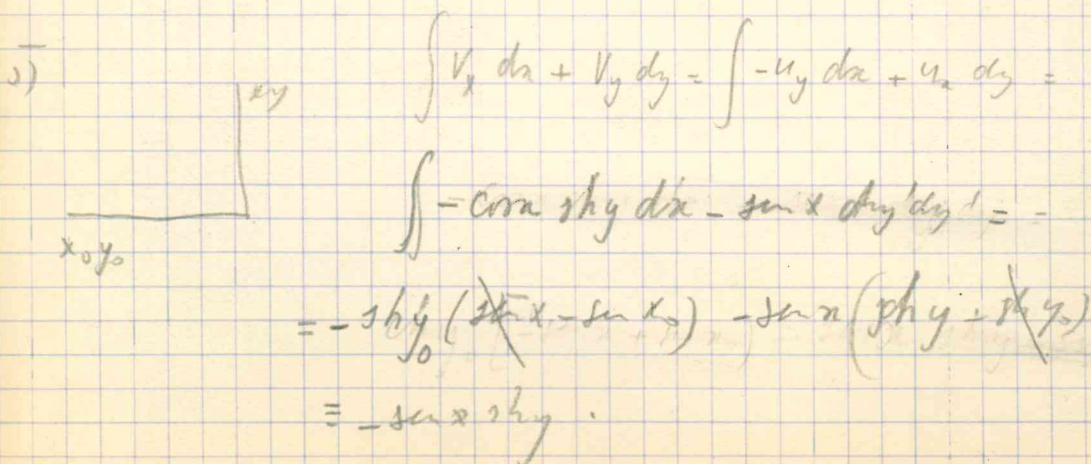 5)
xy
x₀y₀
∫ Vₓ dx + V_y dy = ∫ -u_y dx + uₓ dy =
∫ -cosx shy dx - senx chy'dy' = -
= - shy₀ (senx - senx₀) - senx (shy - shy₀)
= - senx shy.